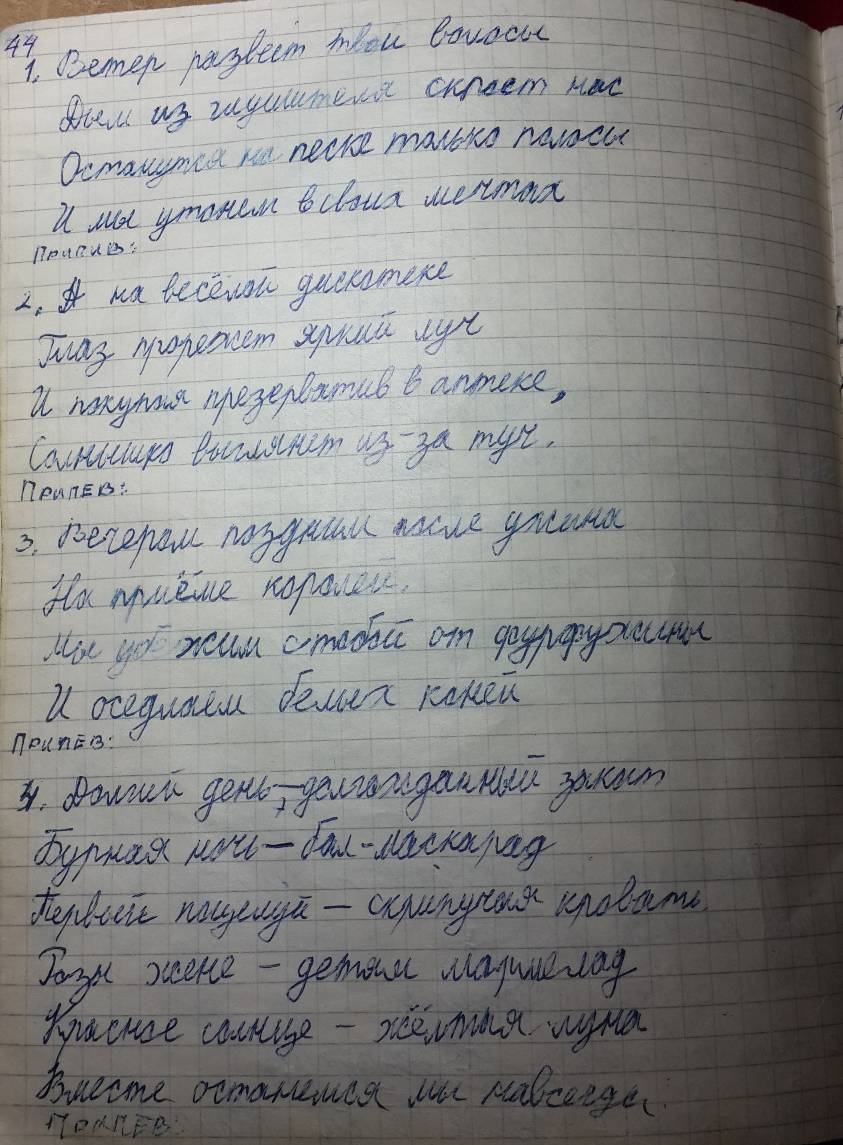 44
1. Ветер развеет твои волосы
Дым из глушителя скроет нас
Останутся на песке только полосы
И мы утонем в своих мечтах
Припев:
2. А на весёлой дискотеке
Глаз прорежет яркий луч
И покупая презерватив в аптеке,
Солнышко выглянет из-за туч.
Припев:
3. Вечером поздним после ужина
На приёме королей.
Мы убежим с тобой от
И оседлаем белых коней
Припев:
4. Долгий день, – долгожданный закат
Бурная ночь – бал-маскарад
Первый поцелуй – скрипучая кровать
Розы жене – детям мармелад
Красное солнце – жёлтая луна
Вместе останемся мы навсегда.
Припев: